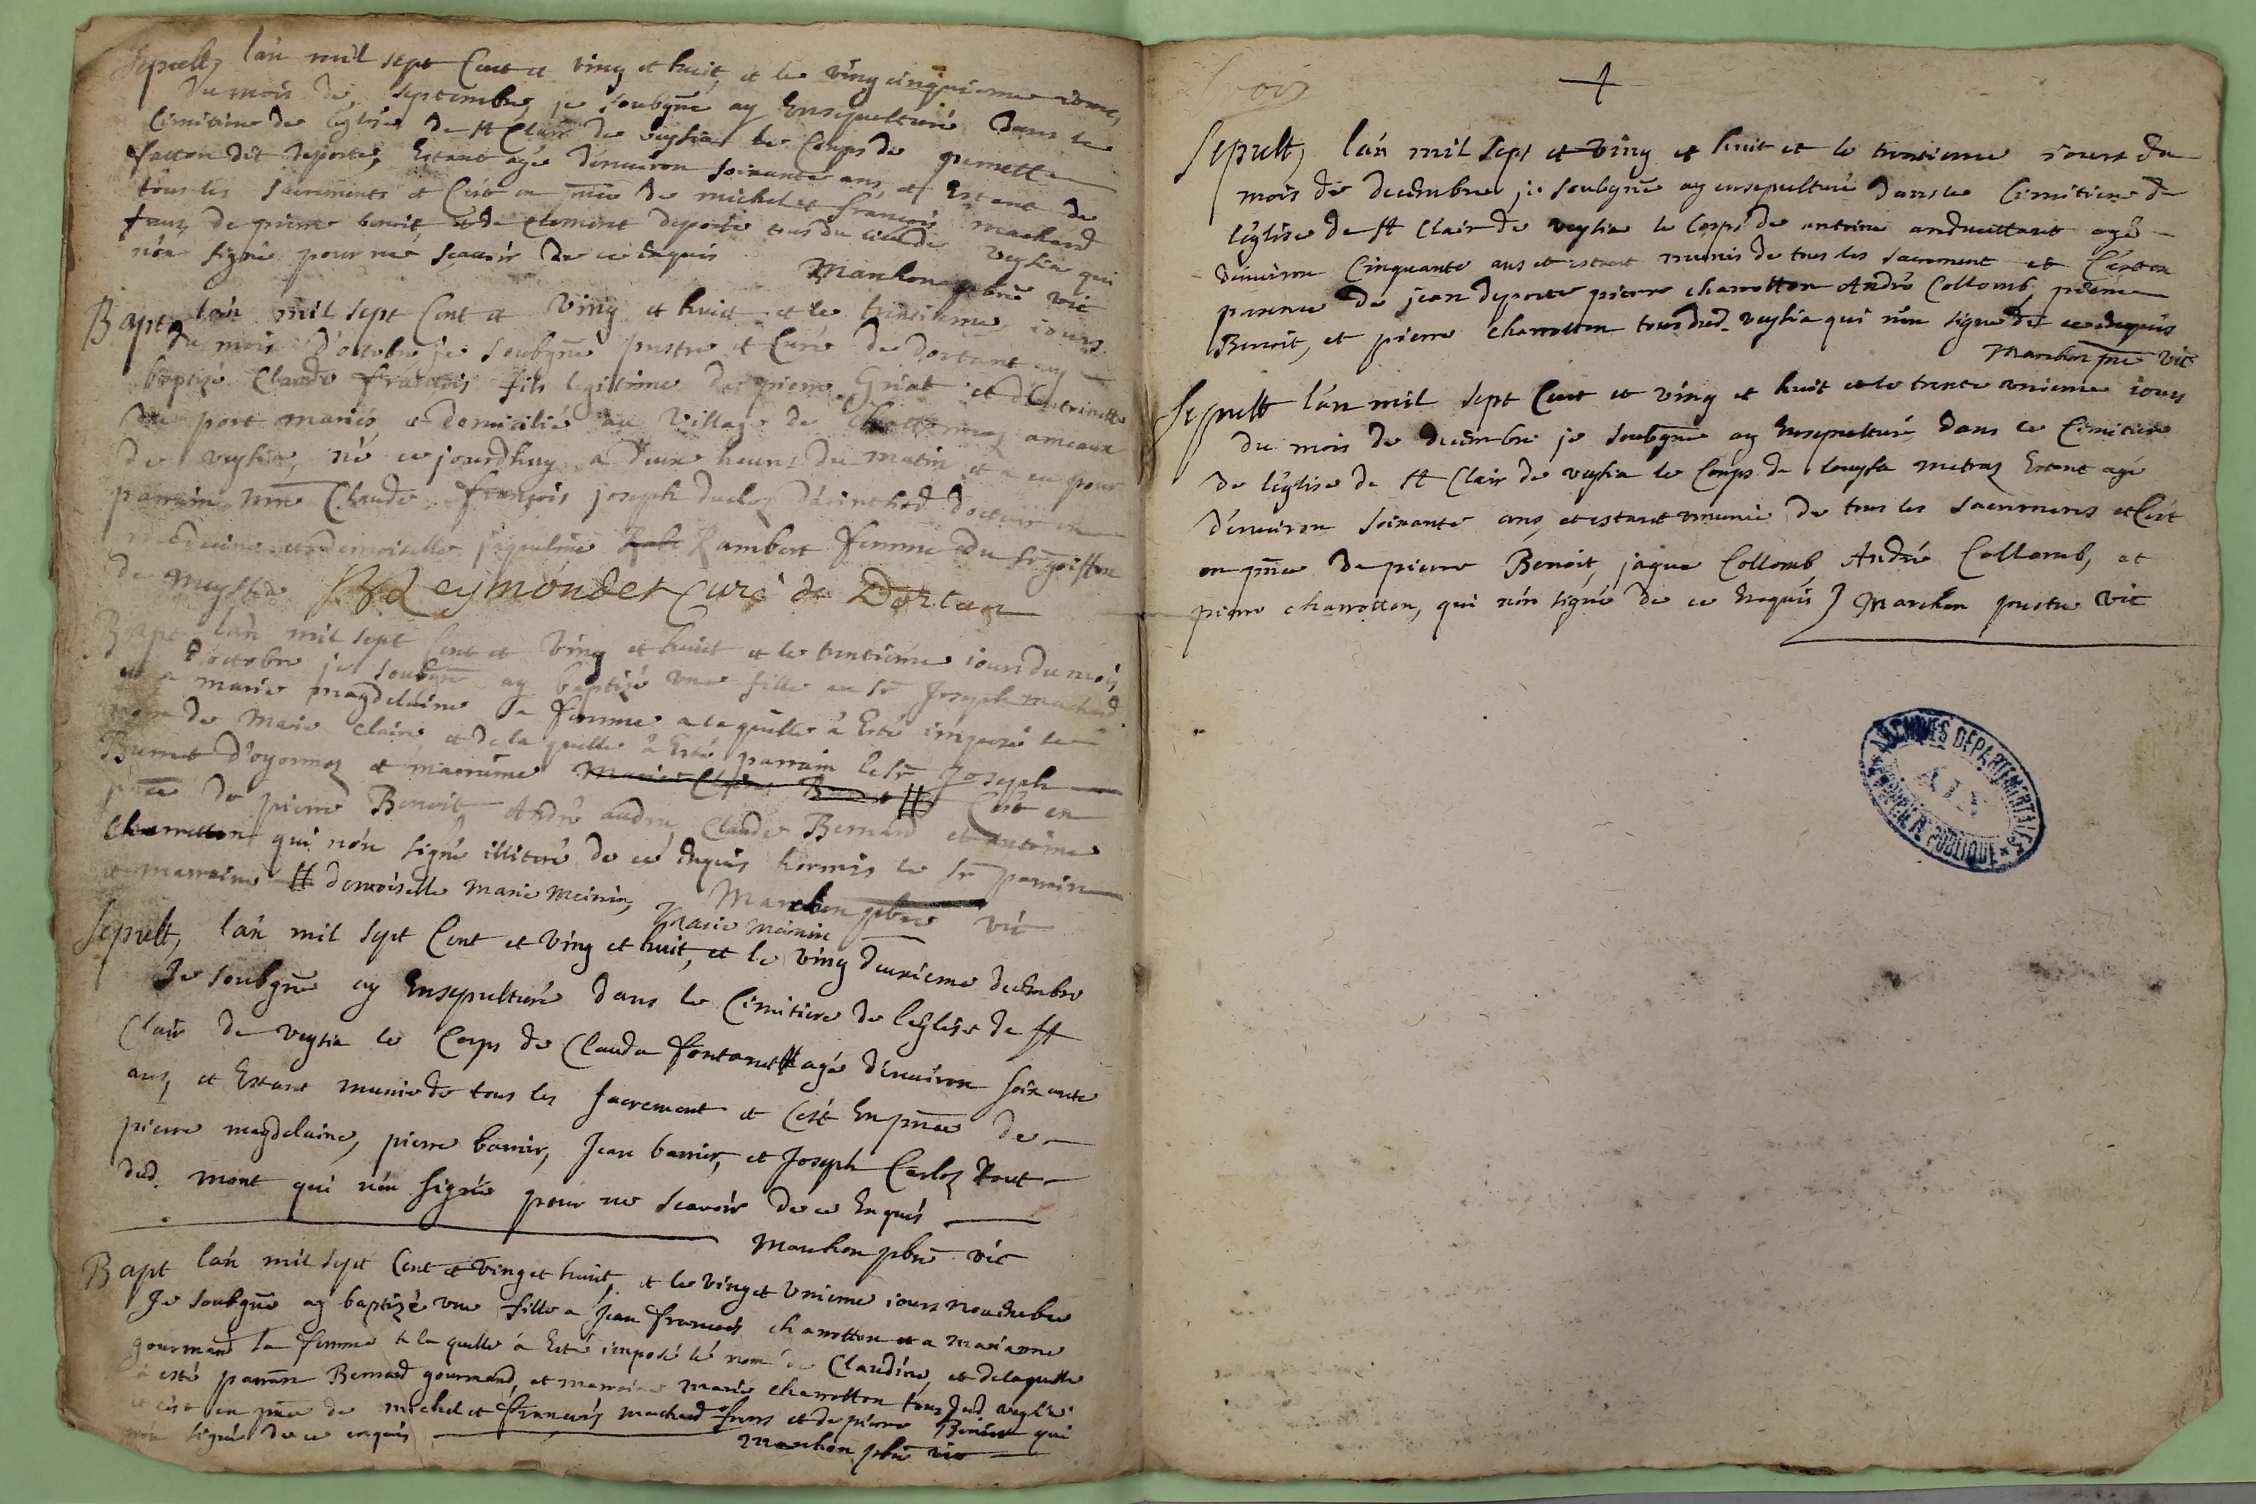 Sepult, lan mil sept Cent et ving et huit, et le ving cinquieme iours
du mois de septembre, je soubgné ay Ensepulturé dans le
Cimitiere de léglise de st Clair de veyzia le Corps de pernette
fatton dit deporte, Estant agée d'enuiron soixante ans, et Estant de
tous les sacrements et C'est en pnce de michel et françois machard
frans, de pierre benoit et de clement deporte tous du lieu de veyzia qui
nón signé pour ne scauoir de ce Enquis
Marchon pbre vic
Bapt, lan mil sept Cent et ving et huit et le trentieme iours
du mois d'octobre je soubgné prestre et Curé de dortant ay
baptizé Claude françois fils legitime de pierre Griat et d'Entoinette
du port mariés et domicilié au village de chottonnaz ameaux
de veyzia, né ce jourdhuy a deux heures du matin et a eu pour
parrain mre Claude françois joseph duchoz d'arinthod docteur en
medecine et demoiselle jaqueline Rambert femme du sr goiffon
de meyssia BLeymondet Curé de Dortan
Bapt, lan mil sept Cent et ving et huit et le trentieme iours du mois
d'octobre je soubgné ay baptizé vne fille au sr Joseph machard
et a marie magdelaine sa femme a laquelle a Esté imposé le
nom de Marie Claire, et de laquelle a Esté parrain le sr Joseph
Burnet D'oyonnaz et marraine Marie Claire Burnet # C'est en
pnce de pierre Benoit, André andre, Claude Bernard et antoine
Charretton qui nón signé illiteré de ce Enquis hormis le sr parrain
et marraine # demoiselle marie meinin, Marchon pbre vic
Marie Meinin
Sepult, lán mil sept Cent et ving et huit, et le ving deuxieme decembre
Je soubgné ay Ensepulturé dans le Cimitiere de l'eglise de st
Clair de veyzia le Corps de Clauda fontanet # agée d'enuiron soixante
ans, et Estant munie de tous les sacrement et C'est En pnce de
pierre magdelaine, pierre barrier, Jean barrier, et Joseph Carloz tout
dud. mont qui nón signée pour ne scauoir de ce Enquis
Marchon pbre vic
Bapt lán mil sept Cent et ving et huit, et le ving et vnieme iours nouembre
Je soubgné ay baptizé vne fille a Jean françois charrotton et a marianne
gourmand sa femme a la quelle a Esté imposé le nom de Claudine, et de laquelle
a esté parrain Bernard gourmand, et marraine marie charrotton tous dud veyzia
et c'est en pnce de michel et françois machard frans et de pierre Benoit qui
nón signé de ce enquis
Marchon pbre vic
Sepult, lán mil sept et ving et huit et le trentieme iours du
mois de decembre je soubgné ay ensepulturé dans le Cimitiere de
léglise de st Clair de veyzia le Corps de antoine anduettant agé
d'enuiron Cinquante ans et estant munis de tous les sacrement et C'est en
presence de jean deporte pierre charrotton André Collomb, pierre
Benoit, et pierre charrotton tous dud. veyzia qui nón signé de ce Enquis
Marchon pre vic
Sepult lán mil sept Cent et ving et huit et le trente vnieme iours
du mois de decembre je soubgné ay Ensepulturé dans le Cimitiere
de léglise de st Clair de veyzia le Corps de louyse metraz Estant agé
d'enuiron soixante ans, et estant munie de tous les sacremens et C'est
en pnce de pierre Benoit, jaque Collomb, André Collomb, et
pierre charrotton, qui nón signé de ce Enquis } Marchon prestre vic
ARCHIVES DEPARTEMENTALES
AIN
PROPRIÉTÉ PUBLIQUE